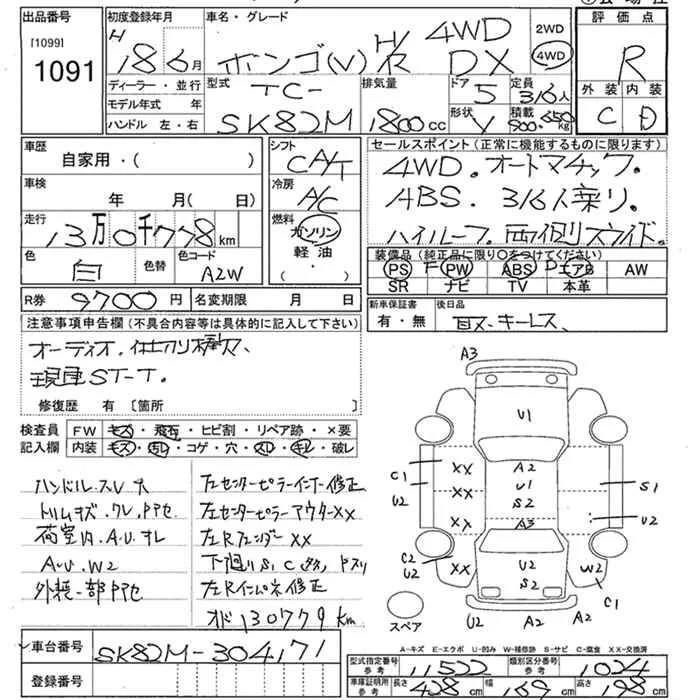 出品番号
[1099]
1091
初度登録年月
H 18年6月
車名・グレード
ボンゴ(V) H/R 4WD DX
2WD
4WD
評価点
R
外装 内装
C D
ディーラー・並行
モデル年式 年
ハンドル 左・右
型式
TC-
SK82M
排気量
1800cc
ドア
5
形状
V
定員
3/6人
積載
kg
車歴
自家用・( )
車検
年 月( 日)
走行
13万0千778km
色
白
色替
色コード
A2W
シフト
CA/T
冷房
A/C
燃料
ガソリン
軽油
( ・ )
セールスポイント(正常に機能するものに限ります)
4WD.オートマチック.
ABS. 3/6人乗り.
ハイルーフ. 両側スライド.
装備品(純正品に限り○をつけてください)
PS PW ABS エアB AW
SR ナビ TV 本革
R券 9700円 名変期限 月 日
新車保証書
有・無
後日品
取、キーレス、
注意事項申告欄(不具合内容等は具体的に記入して下さい)
オーディオ.仕切り棒欠.
現車ST-T.
修復歴 有 〔箇所 〕
検査員
記入欄
FW キズ・飛石・ヒビ割・リペア跡・×要
内装 キズ・汚レ・コゲ・穴・スレ・キレ・破レ
ハンドルスレ大
トリムキズ.ワレ.
荷室内.A.U.オレ
A.U.W2
外装一部
左センターピラーインナー修正
左センターピラーアウターXX
左Rフェンダー XX
下廻りS.C
左Rインパネ修正
130779km
A3
U1
XX
A2
XX
U1
S2
XX
A3
C1
U2
S1
U2
C2
U2
XX
U2
S2
W2
C1
スペア
U2
A2
A2
A-キズ E-エクボ U-凹み W-補修跡 S-サビ C-腐食 XX-交換済
車台番号 SK82M-304171
登録番号
型式指定番号
参考
11522
類別区分番号
参考
1024
車庫証明用
参考
長さ 428cm 幅 169cm 高さ 198cm